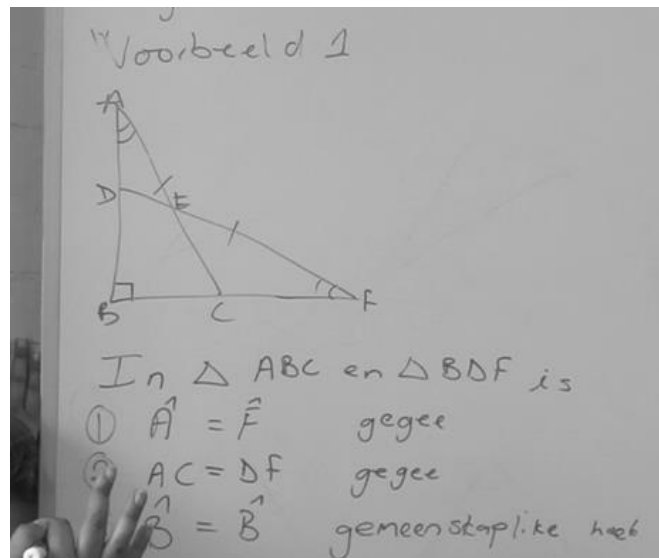 "Voorbeeld 1
A
D
E
B
C
F
In △ ABC en △ BDF is
① Â = F̂ gegee
② AC = DF gegee
B̂ = B̂ gemeenskaplike hoek